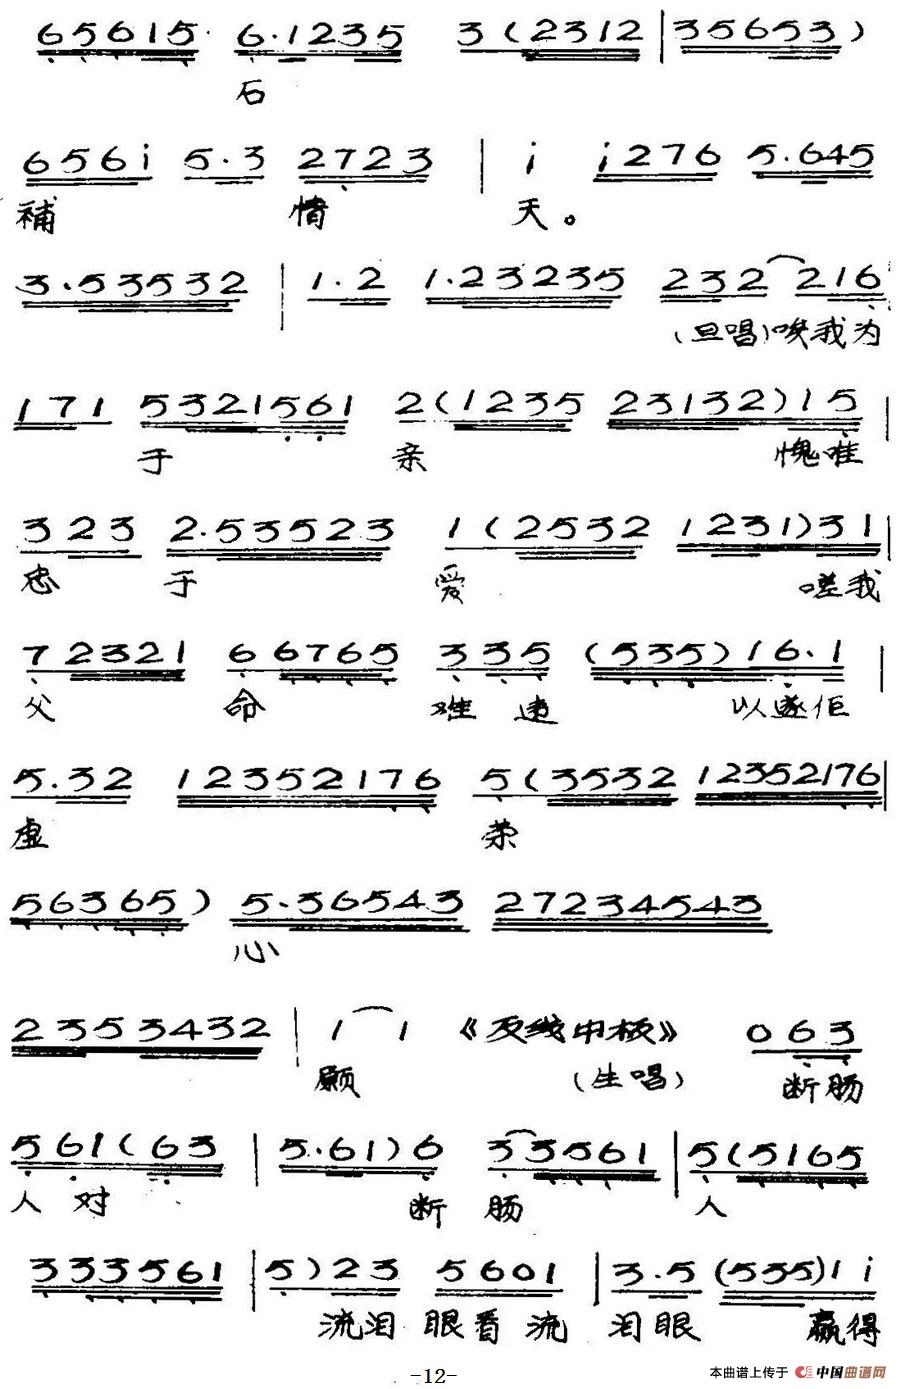 65615 6.1235 3(2312 | 35653)
石
656i 5.3 2723 | i i276 5.645
補 情 天。
3.53532 | 1.2 1.23235 232 216
(旦唱)唉我为
171 5321561 2(1235 23132)15 |
于 亲 愧唯
323 2.53523 1(2532 1231)31 |
忠 于 爱 嗟我
72321 666765 335 (535)16.1 |
父 命 难 违 以遂佢
5.32 12352176 5(3532 12352176 |
虚 荣
56365) 5.36543 27234543
心
2353432 | 1 1 《反线中板》 063
願 (生唱) 断肠
561(63 | 5.61)6 33561 | 5(5165
人 对 断 肠 人
333561 | 5)23 5601 | 3.5 (535)1i
流泪 眼看 流 泪眼 赢得
-12-
本曲谱上传于 中国曲谱网